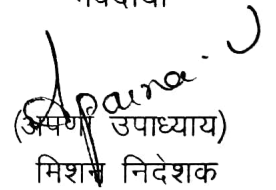 Aparna.
(अपर्णा उपाध्याय)
मिशन निदेशक